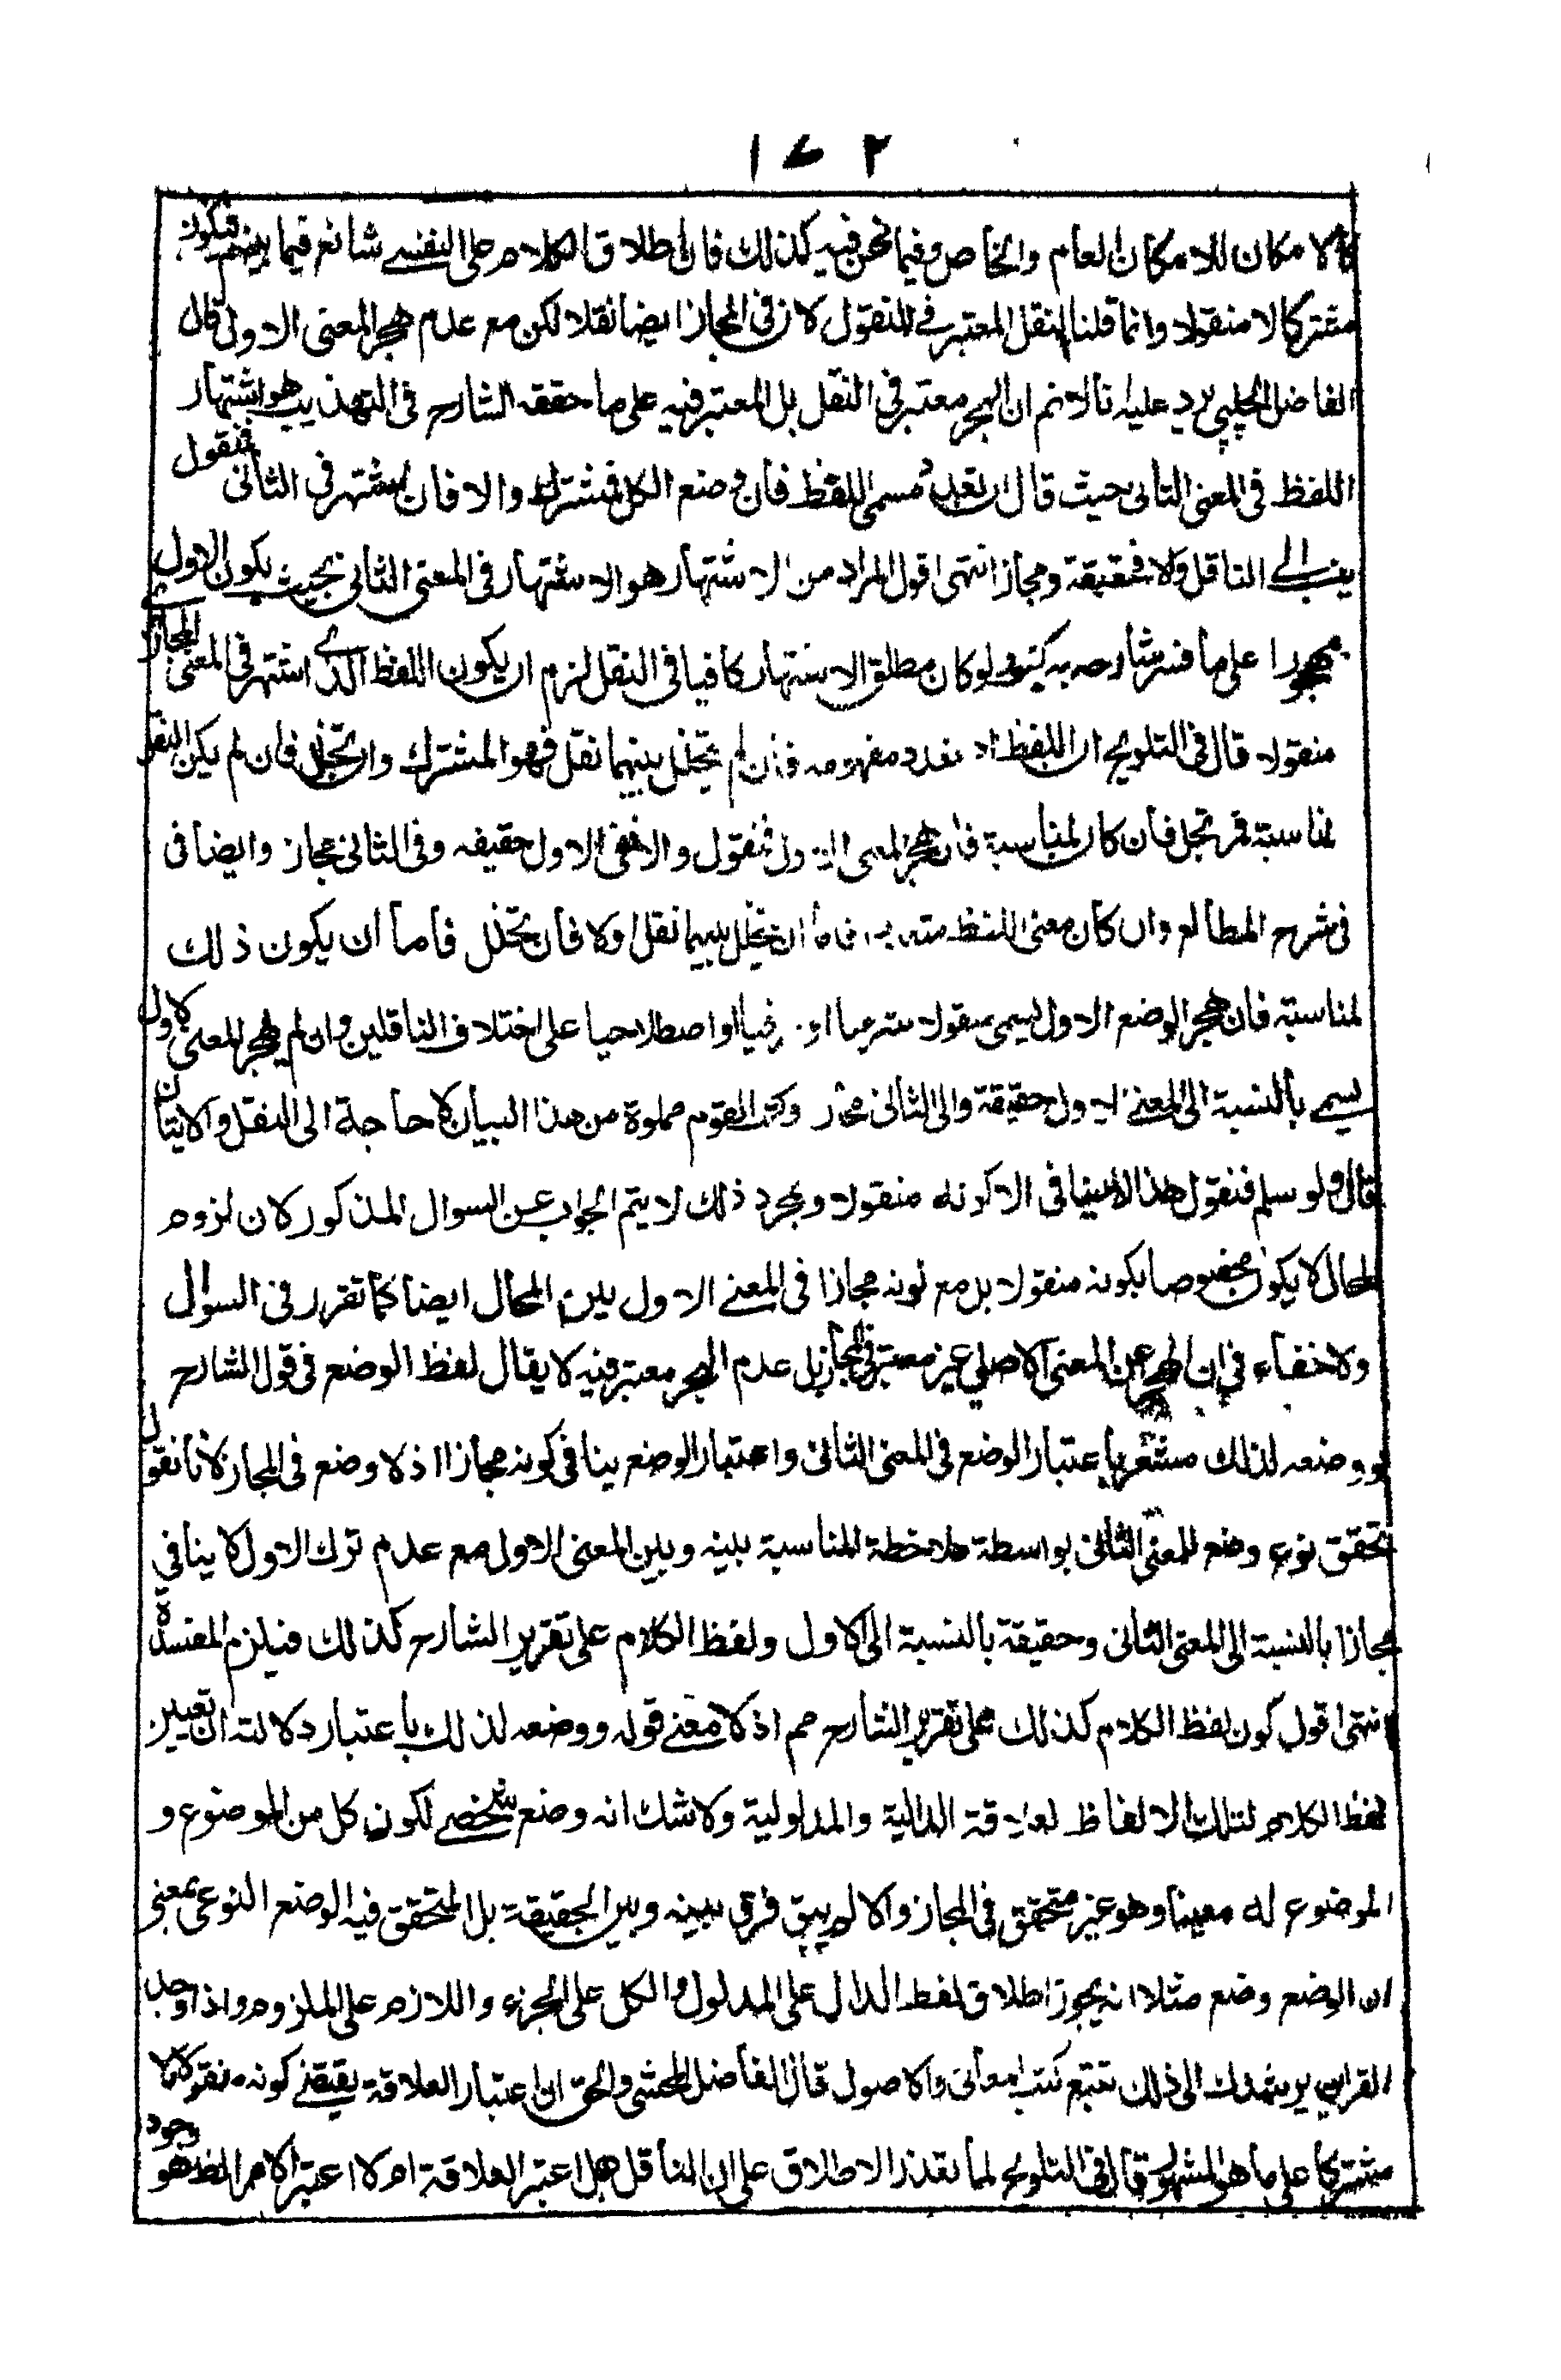 ١٧٢
كالامكان للامكان العام والخاص وفيما نحن فيه كذلك فان اطلاق الكلام على النفسي شائع فيما بينهم فيكون
مشتركا لا منقولا وانما قلنا النقل المعتبر في المنقول لان في المجاز ايضا نقلا لكن مع عدم هجر المعنى الاول قال
الفاضل الچلپي يرد عليه انا لانم ان الهجر معتبر في النقل بل المعتبر فيه على ما حققه الشارح في التهذيب هو اشتهار
اللفظ في المعنى الثاني حيث قال ان تعدد مسمى اللفظ فان وضع الكل فمشترك والا فان اشتهر في الثاني فمنقول
ينسب الى الناقل والا فحقيقة ومجاز انتهى اقول المراد من الاشتهار هو الاشتهار في المعنى الثاني بحيث يكون الاول
مهجورا على ما فسر شارحه به كيف ولو كان مطلق الاشتهار كافيا في النقل لزم ان يكون اللفظ الذي اشتهر في المعنى المجازي
منقولا قال في التلويح ان اللفظ اذا تعدد مفهومه فان لم يتخلل بينهما نقل فهو المشترك وان تخلل فان لم يكن النقل
لمناسبة فمرتجل فان كان لمناسبة فان هجر المعنى الاول فمنقول والا ففي الاول حقيقه وفي الثاني مجاز وايضا في
في شرح المطالع وان كان معنى اللفظ فاما ان يتخلل بينهما نقل اولا فان تخلل فاما ان يكون ذلك
لمناسبة فان هجر الوضع الاول يسمى منقولا شرعيا او عرفيا او اصطلاحيا على اختلاف الناقلين وان لم يهجر المعنى الاول
يسمى بالنسبة الى المعنى الاول حقيقة والى الثاني مجاز وكتب القوم مملوة من هذا البيان لا حاجة الى النقل والاتيان
قال ولو سلم فنقول هذا لا ينافي الا كونه منقولا وبمجرد ذلك لا يتم الجواب عن السوال المذكور لان لزوم
المحال لا يكون مخصوصا بكونه منقولا بل مع كونه مجازا في المعنى الاول يلزم المحال ايضا كما تقرر في السوال
ولا خفاء في ان الهجر عن المعنى الاصلي غير معتبر في المجاز بل عدم الهجر معتبر فيه لا يقال لفظ الوضع في قول الشارح
ووضعه لذلك مشعر باعتبار الوضع في المعنى الثاني واعتبار الوضع ينافي كونه مجازا اذ لا وضع في المجاز لانا نقول
تحقق نوع وضع للمعنى الثاني بواسطة ملاحظة المناسبة بينه وبين المعنى الاول مع عدم ترك الاول لا ينافي
مجازا بالنسبة الى المعنى الثاني وحقيقة بالنسبة الى الاول ولفظ الكلام على تقرير الشارح كذلك فيلزم المفسدة
انتهى اقول كون لفظ الكلام كذلك على تقرير الشارح مم اذ لا معنى قوله ووضعه لذلك باعتبار دلالته ان تعيين
لفظ الكلام لتلك الالفاظ لعلاقة الدالية والمدلولية ولا شك انه وضع شخصي لكون كل من الموضوع و
الموضوع له معينا وهو غير متحقق في المجاز والا لم يبق فرق بينه وبين الحقيقة بل المتحقق فيه الوضع النوعي بمعنى
ان الوضع وضع مثلا انه يجوز اطلاق لفظ الدال على المدلول والكل على الجزء واللازم على الملزوم واذا وجد
القراين يرشدك الى ذلك تتبع كتب المعاني والاصول قال الفاضل المحشي والحق ان اعتبار العلاقة يقتضي كونه منقولا لا
مشتركا على ما هو المشهور قال في التلويح لما تعذر الاطلاق على ان الناقل هل اعتبر العلاقة ام لا اعتبر الامر الظ وهو وجود